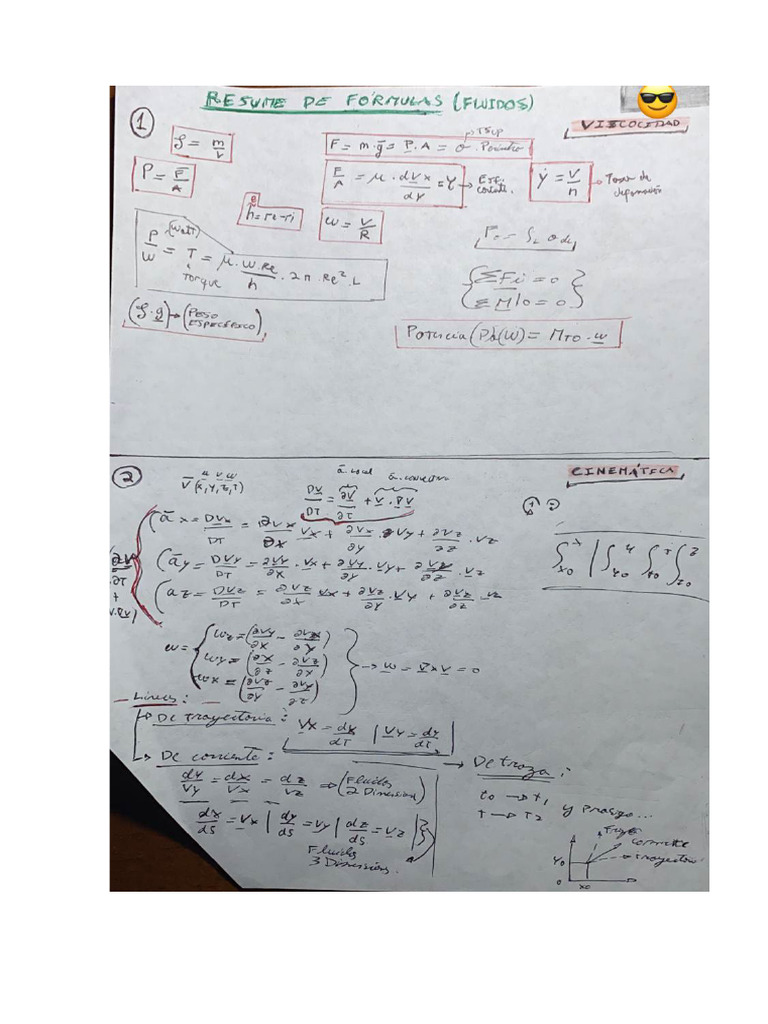 RESUME DE FÓRMULAS (FLUIDOS)
① VISCOCIDAD
ρ = m/V
F = m·g = P·A = σ · Perimetro
P = F/A
F/A = μ · dVx/dy = τ → Esf. cortante.
γ̇ = V/h → Tasa de deformación
h = re - ri
ω = V/R
P/W (WATT) = T = μ·W·Re/h · 2π·Re²·L
TORQUE
ΣFi = 0
ΣM|o = 0
(ρ·g) → (PESO ESPECÍFICO)
Potencia (Pd(W)) = MTO · w
② CINEMÁTICA
u v w
V(X, Y, Z, T)
a. local a. convectiva
DV/DT = ∂V/∂T + V·∇V
ax = DVx/DT = ∂Vx/∂x · Vx + ∂Vx/∂y · Vy + ∂Vz/∂z · Vz
ay = DVy/DT = ∂Vy/∂x · Vx + ∂Vy/∂y · Vy + ∂Vz/∂z · Vz
az = DVz/DT = ∂Vz/∂x Vx + ∂Vz/∂y · Vy + ∂Vz/∂z · Vz
∂V/∂T + V·∇V
∫x0 x | ∫y0 y ∫ ∫z0 z
wz = (∂Vy/∂x - ∂Vx/∂y)
w = wy = (∂x/∂z - ∂Vz/∂x) → w = ∇xV = 0
wx = (∂Vz/∂y - ∂Vy/∂z)
Lineas:
→ De trayectoria: Vx = dx/dT | Vy = dy/dT
→ De corriente:
→ De traza:
dy/Vy = dx/Vx = dz/Vz ⇒ (Fluidos 2 Dimension)
t0 → t1 y
t → T2
dx/ds = Vx | dy/ds = Vy | dz/ds = Vz
Fluidos
3 Dimensions.
Traza
corriente
trayectoria
Y0
0 X0